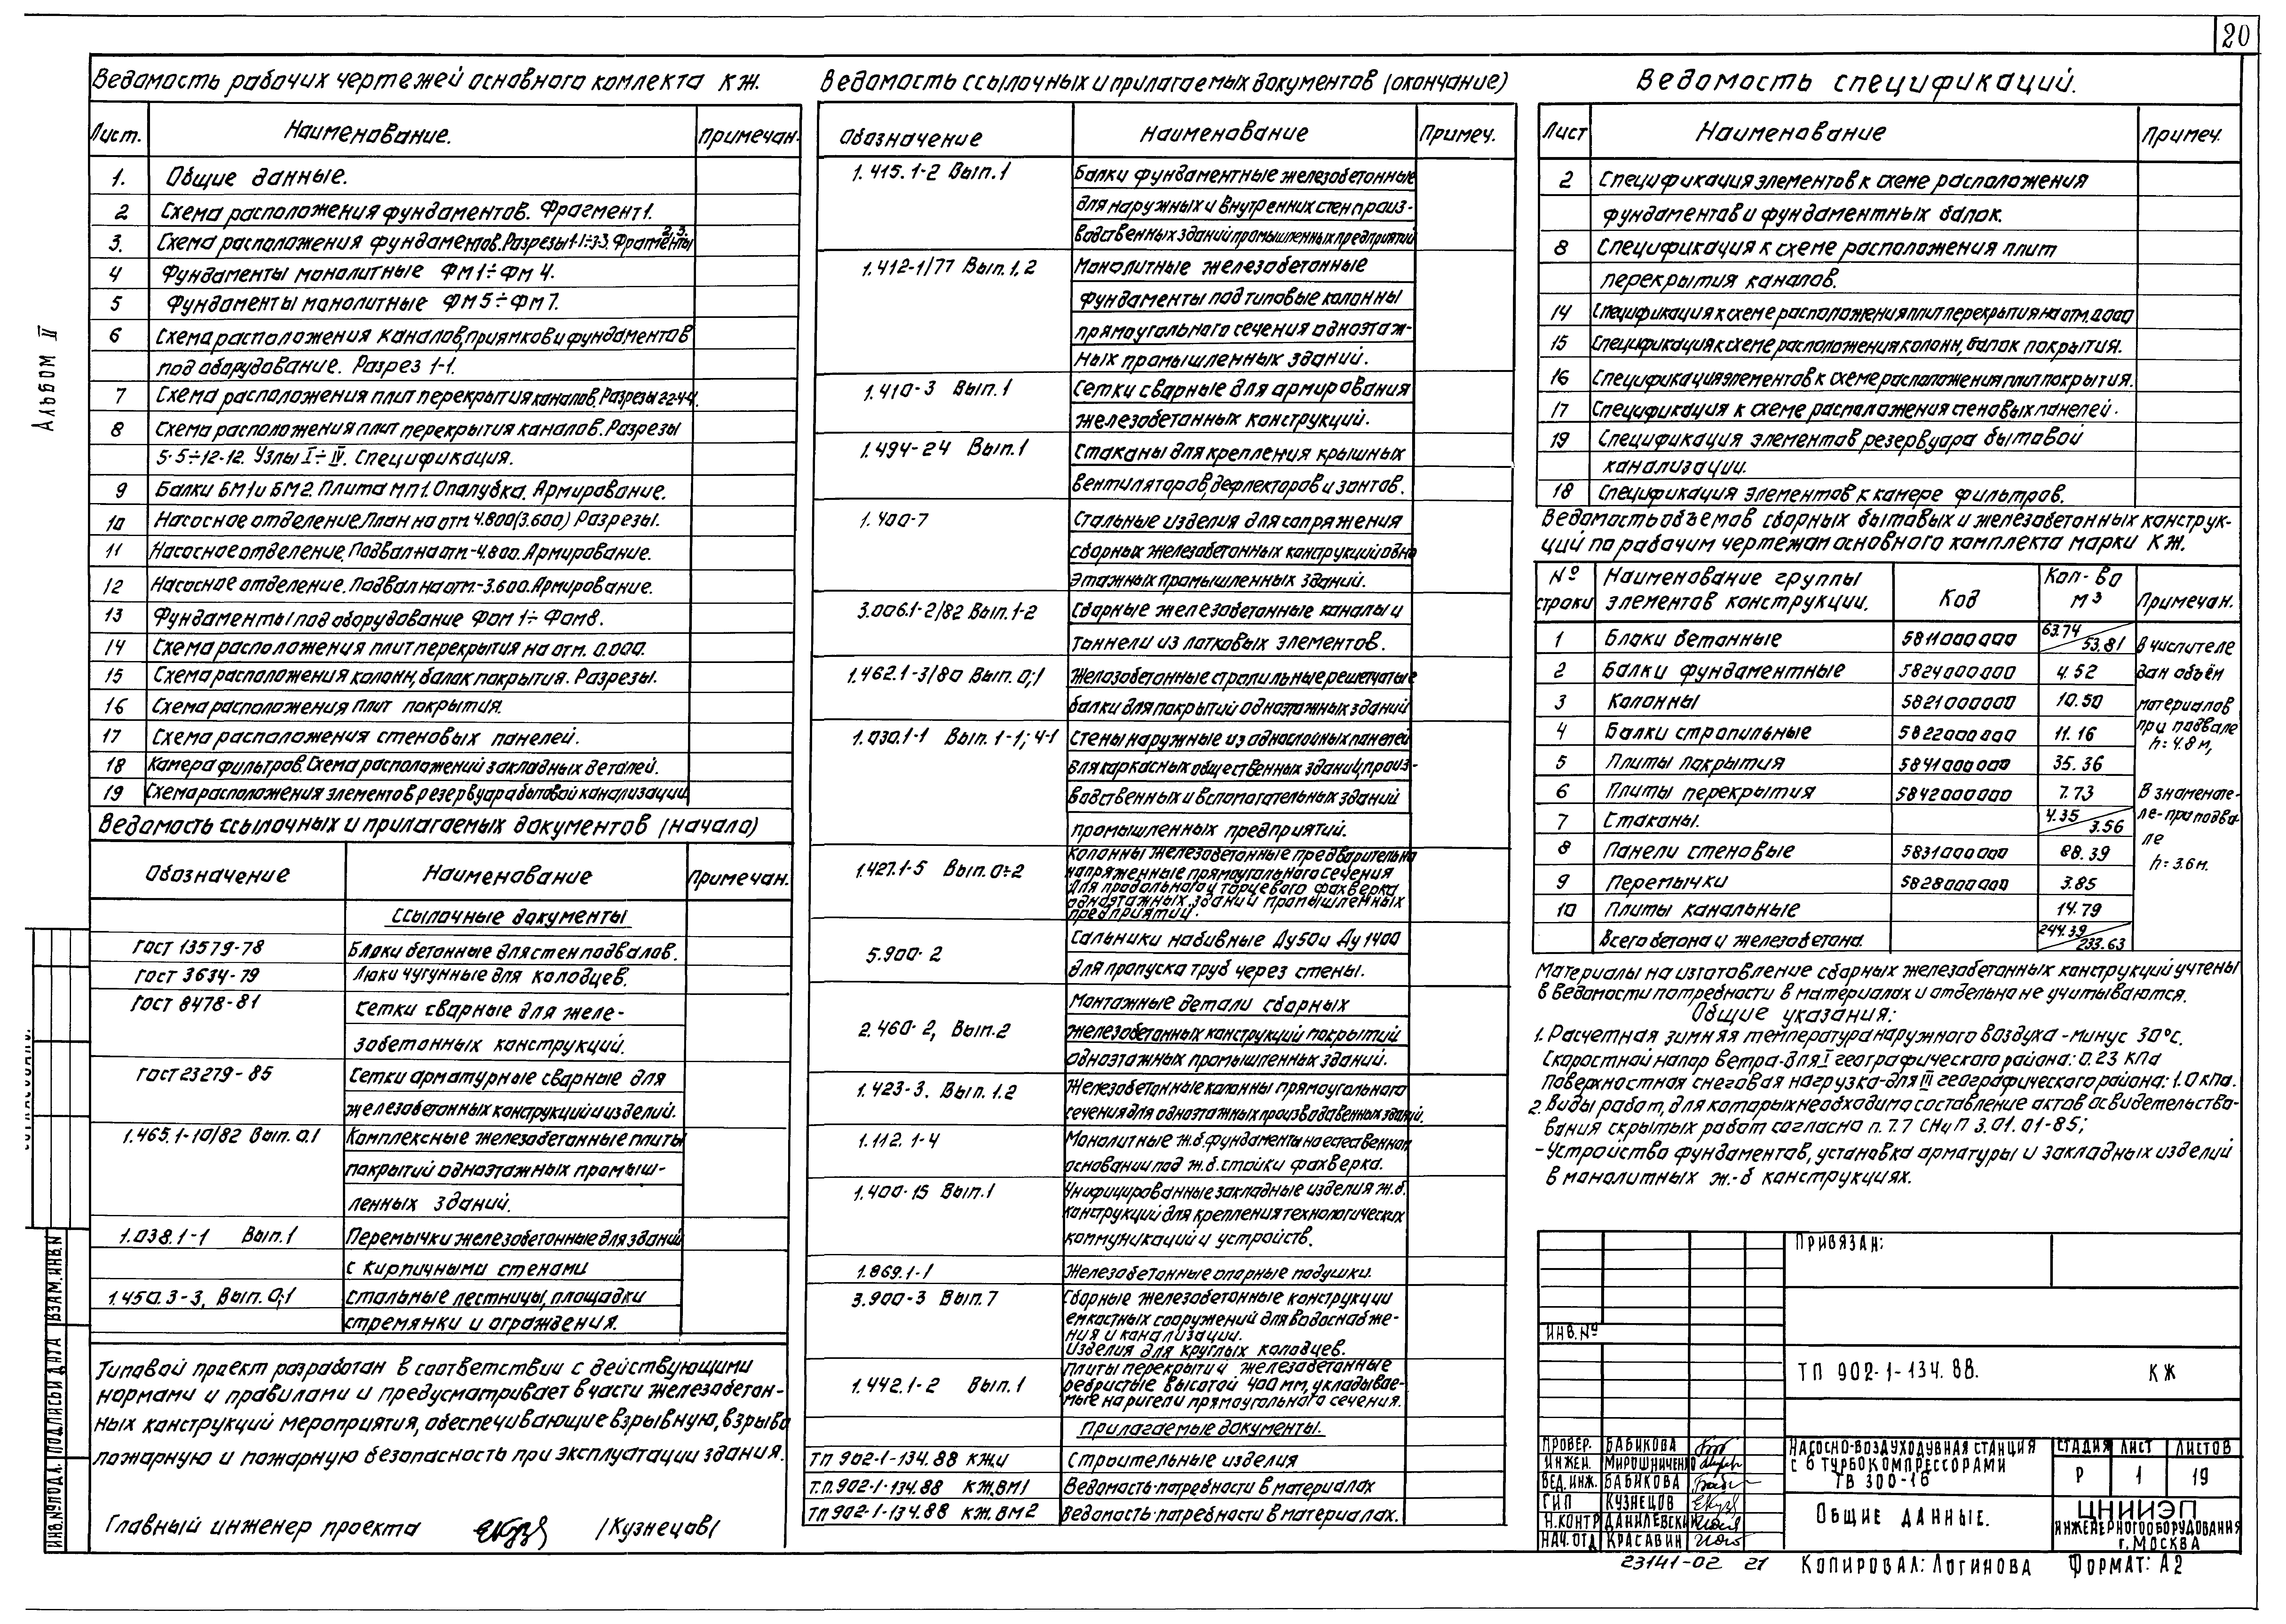 20
Альбом II
Ведомость рабочих чертежей основного комлекта КЖ.
Лист. Наименование. Примечан.
1. Общие данные.
2 Схема расположения фундаментов. Фрагмент 1.
3. Схема расположения фундаментов. Разрезы 1-1÷3-3. Фрагменты 2,3.
4 Фундаменты монолитные ФМ1÷ФМ4.
5 Фундаменты монолитные ФМ5÷ФМ7.
6 Схема расположения каналов, приямков и фундаментов
под оборудование. Разрез 1-1.
7 Схема расположения плит перекрытия каналов. Разрезы 2-2÷4-4.
8 Схема расположения плит перекрытия каналов. Разрезы
5-5÷12-12. Узлы I÷IV. Спецификация.
9 Балки БМ1 и БМ2. Плита МП1. Опалубка. Армирование.
10 Насосное отделение. План на отм 4.800(3.600) Разрезы.
11 Насосное отделение. Подвал на отм-4.800. Армирование.
12 Насосное отделение. Подвал на отм.-3.600. Армирование.
13 Фундаменты под оборудование Фом 1÷ Фом8.
14 Схема расположения плит перекрытия на отм. 0.000.
15 Схема расположения колонн, балок покрытия. Разрезы.
16 Схема расположения плит покрытия.
17 Схема расположения стеновых панелей.
18 Камера фильтров. Схема расположений закладных деталей.
19 Схема расположения элементов резервуара бытовой канализации
Ведомость ссылочных и прилагаемых документов (начало)
Обозначение Наименование Примечан.
Ссылочные документы
ГОСТ 13579-78 Блоки бетонные для стен подвалов.
ГОСТ 3634-79 Люки чугунные для колодцев.
ГОСТ 8478-81 Сетки сварные для желе-
зобетонных конструкций.
ГОСТ 23279-85 Сетки арматурные сварные для
железобетонных конструкций и изделий.
1.465.1-10/82 Вып. 0.1 Комплексные железобетонные плиты
покрытий одноэтажных промыш-
ленных зданий.
1.038.1-1 Вып.1 Перемычки железобетонные для зданий
с кирпичными стенами
1.450.3-3, Вып. 0;1 Стальные лестницы, площадки
стремянки и ограждения.
Типовой проект разработан в соответствии с действующими
нормами и правилами и предусматривает в части железобетон-
ных конструкций мероприятия, обеспечивающие взрывную, взрыво
пожарную и пожарную безопасность при эксплуатации здания.
Главный инженер проекта /Кузнецов/
Ведомость ссылочных и прилагаемых документов (окончание)
Обозначение Наименование Примеч.
1.415.1-2 Вып.1 Балки фундаментные железобетонные
для наружных и внутренних стен произ-
водственных зданий промышленных предприятий
1.412-1/77 Вып.1,2 Монолитные железобетонные
фундаменты под типовые колонны
прямоугольного сечения одноэтаж-
ных промышленных зданий.
1.410-3 Вып.1 Сетки сварные для армирования
железобетонных конструкций.
1.494-24 Вып.1 Стаканы для крепления крышных
вентиляторов, дефлекторов и зонтов.
1.400-7 Стальные изделия для сопряжения
сборных железобетонных конструкций одно
этажных промышленных зданий.
3.006.1-2/82 Вып.1-2 Сборные железобетонные каналы и
тоннели из лотковых элементов.
1.462.1-3/80 Вып. 0;1 Железобетонные стропильные решетчатые
балки для покрытий одноэтажных зданий
1.030.1-1 Вып. 1-1; 4-1 Стены наружные из однослойных панелей
для каркасных общественных зданий, произ-
водственных и вспомогательных зданий
промышленных предприятий.
1.427.1-5 Вып. 0÷2 Колонны железобетонные предварительно
напряженные прямоугольного сечения
для продольного и торцевого фахверка
одноэтажных зданий промышленных
предприятий.
5.900-2 Сальники набивные Ду50 и Ду 1400
для пропуска труб через стены.
2.460-2, Вып.2 Монтажные детали сборных
железобетонных конструкций покрытий
одноэтажных промышленных зданий.
1.423-3. Вып. 1.2 Железобетонные колонны прямоугольного
сечения для одноэтажных производственных зданий.
1.112.1-4 Монолитные ж.б. фундаменты на естественном
основании под ж.б. стойки фахверка.
1.400-15 Вып.1 Унифицированные закладные изделия ж.б.
конструкций для крепления технологических
коммуникаций и устройств.
1.869.1-1 Железобетонные опорные подушки.
3.900-3 Вып.7 Сборные железобетонные конструкции
емкостных сооружений для водоснабже-
ния и канализации.
Изделия для круглых колодцев.
1.442.1-2 Вып.1 Плиты перекрытий железобетонные
ребристые высотой 400 мм, укладывае-
мые на ригели прямоугольного сечения.
Прилагаемые документы.
ТП 902-1-134.88 КЖИ Строительные изделия
Т.П.902-1-134.88 КЖ.ВМ1 Ведомость потребности в материалах
ТП 902-1-134.88 КЖ.ВМ2 Ведомость потребности в материалах.
Ведомость спецификаций.
Лист Наименование Примеч.
2 Спецификация элементов к схеме расположения
фундаментов и фундаментных балок.
8 Спецификация к схеме расположения плит
перекрытия каналов.
14 Спецификация к схеме расположения плит перекрытия на отм. 0.000
15 Спецификация к схеме расположения колонн, балок покрытия.
16 Спецификация элементов к схеме расположения плит покрытия.
17 Спецификация к схеме расположения стеновых панелей.
19 Спецификация элементов резервуара бытовой
канализации.
18 Спецификация элементов к камере фильтров.
Ведомость объемов сборных бытовых и железобетонных конструк-
ций по рабочим чертежам основного комплекта марки КЖ.
№ строки Наименование группы элементов конструкции. Код Кол-во м³ Примечан.
1 Блоки бетонные 5811000000 63.74/53.81
2 Балки фундаментные 5824000000 4.52
3 Колонны 5821000000 10.50
4 Балки стропильные 5822000000 11.16
5 Плиты покрытия 5841000000 35.36
6 Плиты перекрытия 5842000000 7.73
7 Стаканы. 4.35/3.56
8 Панели стеновые 5831000000 88.39
9 Перемычки 5828000000 3.85
10 Плиты канальные 14.79
Всего бетона и железобетона. 244.39/233.63
в числителе
дан объём
материалов
при подвале
h=4.8м,
В знаменате-
ле-при подва-
ле
h=3.6м.
Материалы на изготовление сборных железобетонных конструкций учтены
в ведомости потребности в материалах и отдельно не учитываются.
Общие указания:
1. Расчетная зимняя температура наружного воздуха - минус 30°С.
Скоростной напор ветра-для I географического района: 0.23 КПа
Поверхностная снеговая нагрузка-для III географического района: 1.0 кПа.
2. Виды работ, для которых необходимо составление актов освидетельство-
вания скрытых работ согласно п. 7.7 СНиП 3.01.01-85;
-Устройство фундаментов, установка арматуры и закладных изделий
в монолитных ж.-б конструкциях.
ПРИВЯЗАН:
ИНВ.№
ТП 902-1-134.88. КЖ
ПРОВЕР. БАБИКОВА
ИНЖЕН. МИРОШНИЧЕНКО
ВЕД.ИНЖ. БАБИКОВА
ГИП КУЗНЕЦОВ
Н.КОНТР ДАНИЛЕВСКИЙ
НАЧ.ОТД КРАСАВИН
НАСОСНО-ВОЗДУХОДУВНАЯ СТАНЦИЯ
С 6 ТУРБОКОМПРЕССОРАМИ
ТВ 300-1.6
СТАДИЯ ЛИСТ ЛИСТОВ
Р 1 19
ОБЩИЕ ДАННЫЕ.
ЦНИИЭП
ИНЖЕНЕРНОГО ОБОРУДОВАНИЯ
г. МОСКВА
23141-02 21 КОПИРОВАЛ: ЛОГИНОВА ФОРМАТ: А2
ИНВ.№ПОДЛ. ПОДПИСЬ И ДАТА ВЗАМ.ИНВ.N